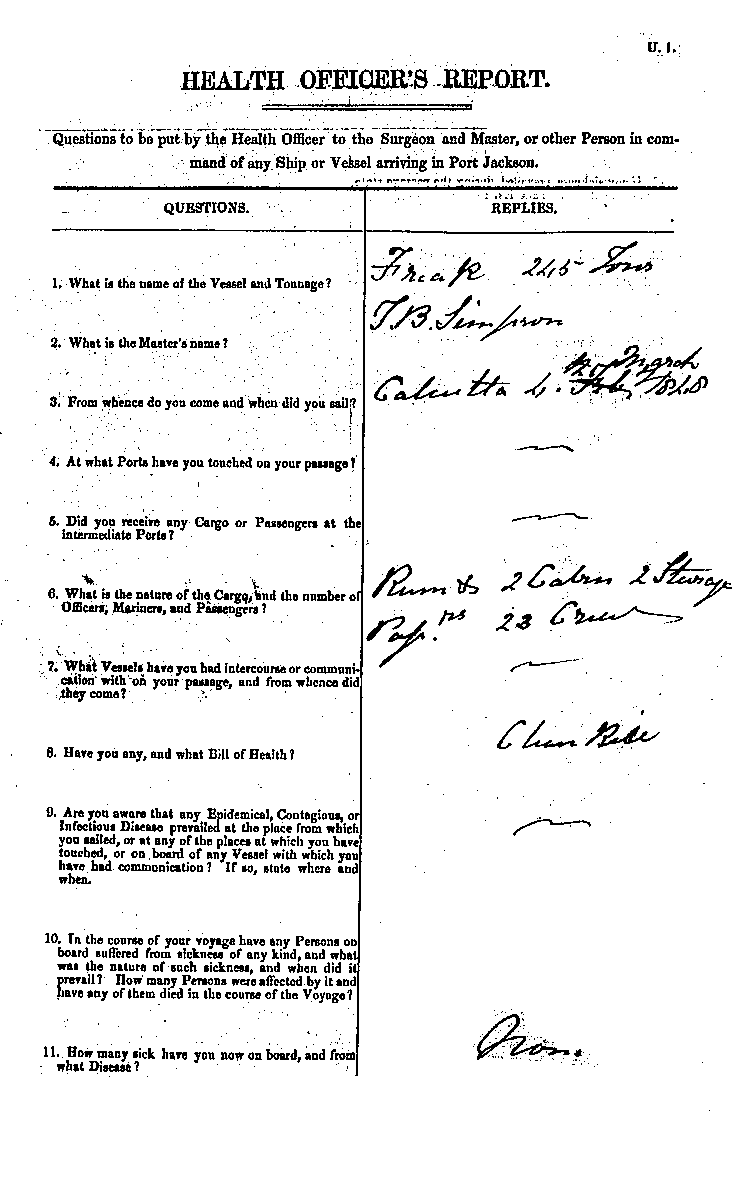 U. 1.
HEALTH OFFICER'S REPORT.
Questions to be put by the Health Officer to the Surgeon and Master, or other Person in com-
mand of any Ship or Vessel arriving in Port Jackson.
QUESTIONS.
REPLIES.
1. What is the name of the Vessel and Tonnage?
Freak 245 Tons
2. What is the Master's name?
T B. Simpson
3. From whence do you come and when did you sail?
March
Calcutta 4. Feb 1848
4. At what Ports have you touched on your passage?
—
5. Did you receive any Cargo or Passengers at the
intermediate Ports?
—
6. What is the nature of the Cargo, and the number of
Officers, Mariners, and Passengers?
Rum & 2 Cabin 2 Sterage
Pas.rs 23 Crew
7. What Vessels have you had intercourse or communi-
cation with on your passage, and from whence did
they come?
—
8. Have you any, and what Bill of Health?
Clean Bill
9. Are you aware that any Epidemical, Contagious, or
Infectious Disease prevailed at the place from which
you sailed, or at any of the places at which you have
touched, or on board of any Vessel with which you
have had communication? If so, state where and
when.
—
10. In the course of your voyage have any Persons on
board suffered from sickness of any kind, and what
was the nature of such sickness, and when did it
prevail? How many Persons were affected by it and
have any of them died in the course of the Voyage?
11. How many sick have you now on board, and from
what Disease?
None